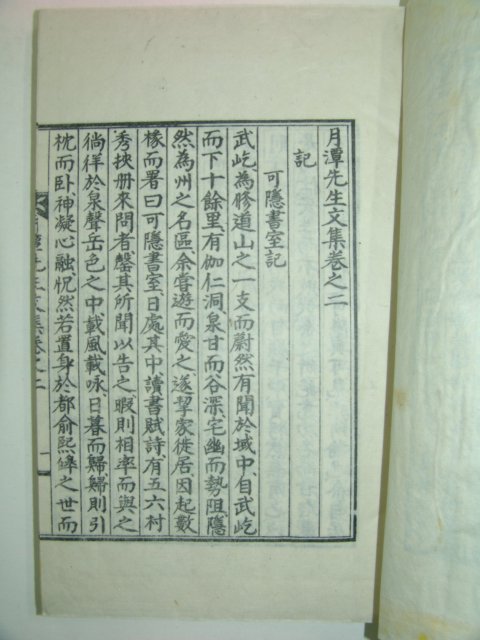 月潭先生文集卷之二
記
可隱書室記
武屹為修道山之一支而蔚然有聞於域中自武屹
而下十餘里有伽仁洞泉甘而谷深宅幽而勢阻隱
然為州之名區余嘗遊而愛之遂挈家徙居因起數
椽而署曰可隱書室日處其中讀書賦詩有五六村
秀挾册來問者罄其所聞以告之暇則相率而與之
徜徉於泉聲岳色之中載風載咏日暮而歸歸則引
枕而卧神凝心融怳然若置身於都俞熙皥之世而
月潭先生文集卷之二